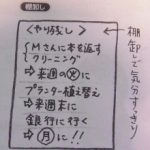 棚卸し
<やり残し>
Mさんに本を返す
クリーニング
⇒来週の㊌に
プランター植え替え
⇒来週末に
銀行に行く
⇒㊊に!!
棚卸しで気分すっきり